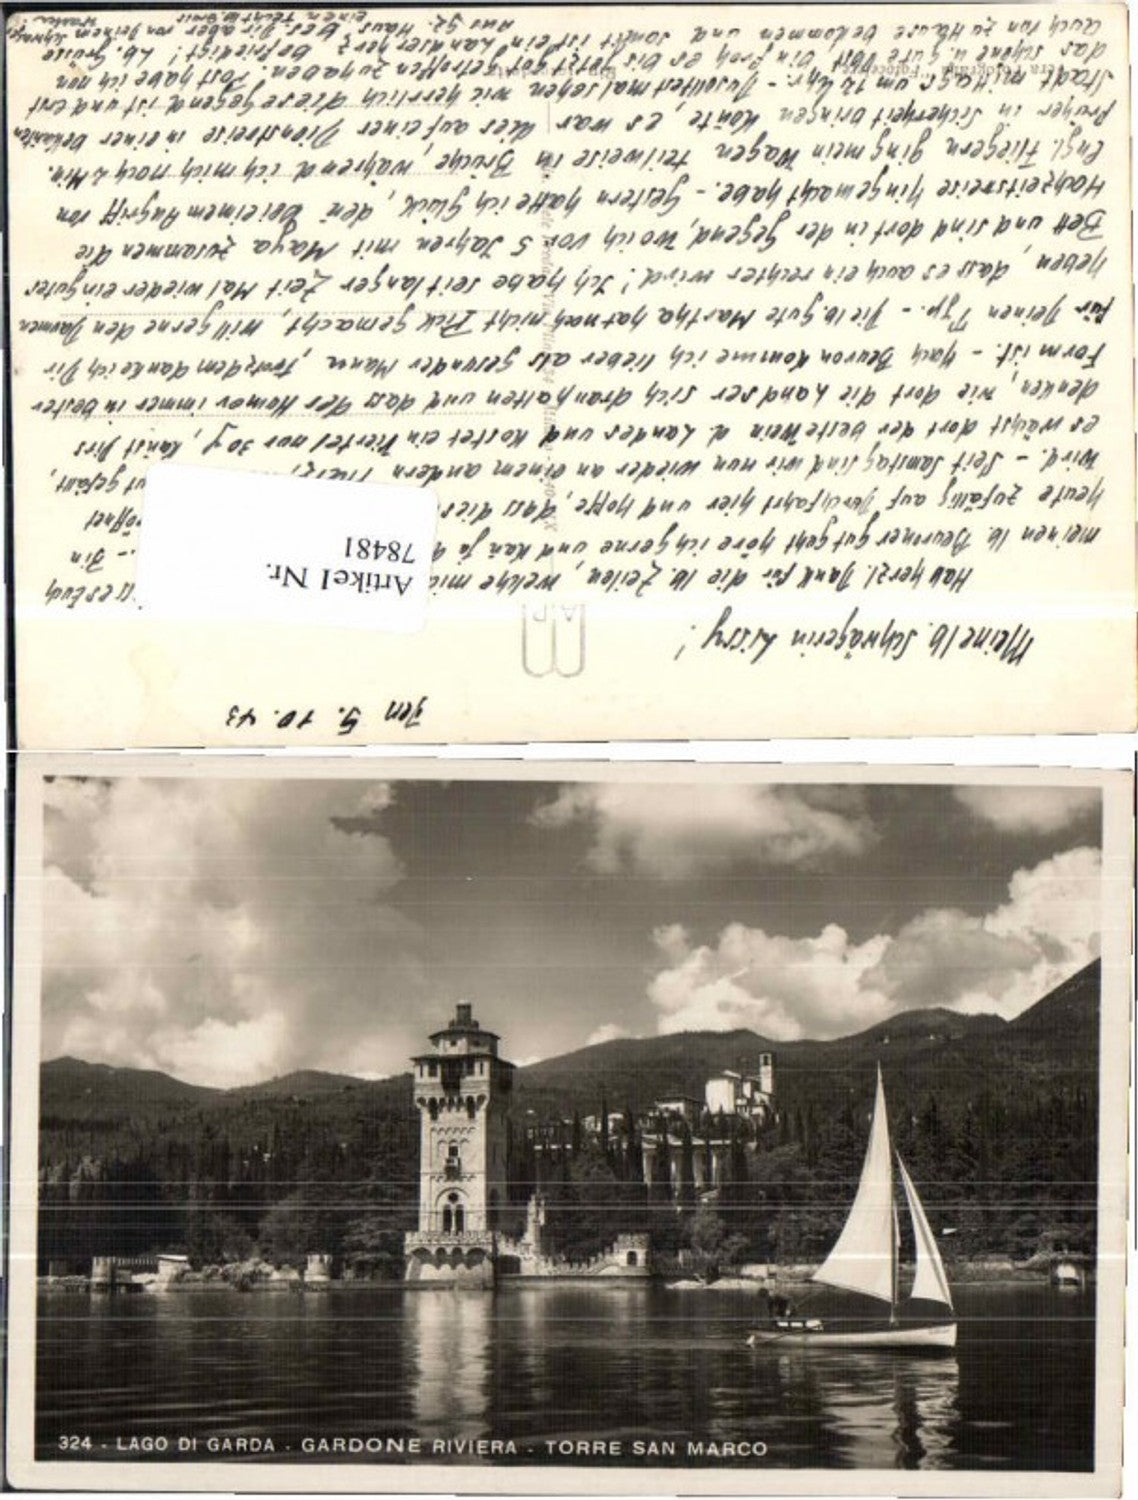 den 5. 10. 43
Meine lb. Schwägerin Lissy!
Hab herzl. Dank für die lb. Zeilen, welche
meinen lb. Beuroner gut geht höre ich gerne und kan ja
heute zufällig auf Durchfahrt hier und hoffe, dass
wird. - Seit Samstag sind wir nun wieder an einem andern gut gefällt,
es wächst dort der beste Wein d. Landes und kostet ein Viertel nur 30 kanst Dirs
denken, wie dort die Landser sich dranhalten und dass der Humor immer in bester
Form ist. - Nach Beuron komme ich lieber als gesunder Mann, trotzdem danke ich Dir
für Deinen Tip. - Die lb. gute Martha hat noch nicht Dick gemacht, will gerne den Daumen
heben, dass es auch ein rechter wird! Ich habe seit langer Zeit Mal wieder ein gutes
Bett und sind dort in der Gegend, wo ich vor 5 Jahren mit Maya zusammen die
Hochzeitsreise hingemacht habe. - Gestern hatte ich Glück, den bei einem Angriff von
Engl. Fliegern ging mein Wagen teilweise in Brüche, während ich mich noch 2 Min.
früher in Sicherheit bringen konte, es war dies auf einer Dienstreise in einer bekanten
Stadt mittags um 12 Uhr. - Du solltest mal sehen wie herrlich diese Gegend ist und erst
das schöne u. gute Obst bin froh es bis jetzt gut getroffen zu haben. Post habe ich nun
auch von zu Hause bekommen und somit ist ein Landserherz befriedigt! Lb. Grüsse
aus
Artikel Nr.
78481
324 - LAGO DI GARDA - GARDONE RIVIERA - TORRE SAN MARCO